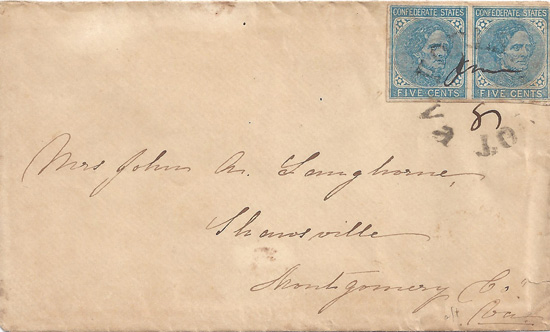 CONFEDERATE STATES CONFEDERATE STATES
FIVE CENTS FIVE CENTS
Mrs John A. Langhorne,
Shawsville
Montgomery Co
Va